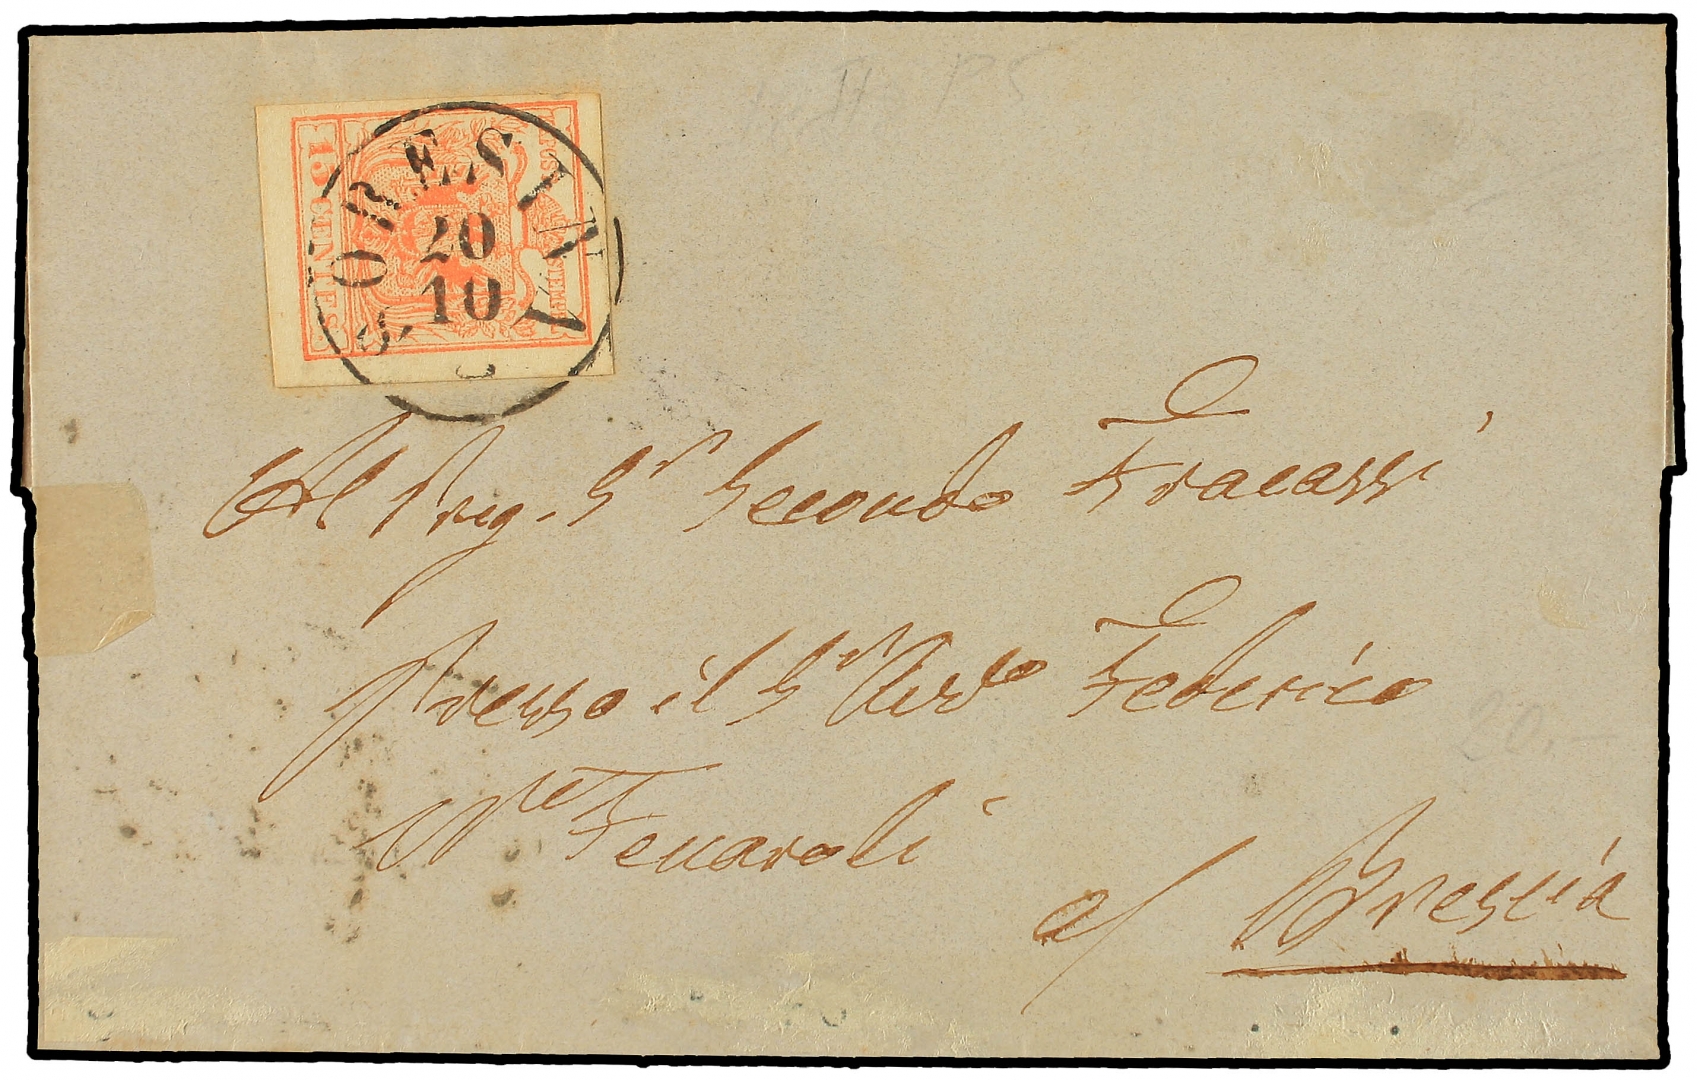 15 CENTES.
SORESINA
20
10
Al Preg. Sr Secondo Fracassi
presso il Sr Federico
Fenaroli
a/ Brescia
20.-